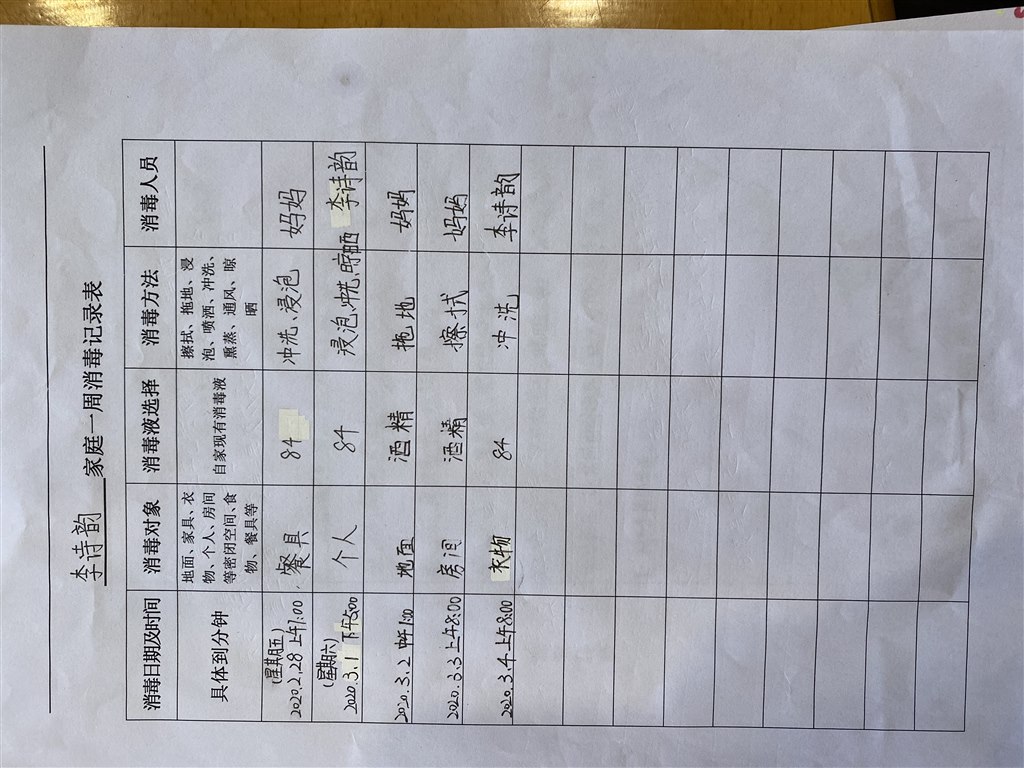 李诗韵 家庭一周消毒记录表
消毒日期及时间 消毒对象 消毒液选择 消毒方法 消毒人员
具体到分钟 地面、家具、衣物、个人、房间等密闭空间、食物、餐具等 自家现有消毒液 擦拭、拖地、浸泡、喷洒、冲洗、熏蒸、通风、晾晒
(星期五)
2020.2.28 上午1:00 餐具 84 冲洗、浸泡 妈妈
(星期六)
2020.3.1 下午5:00 个人 84 浸泡、冲洗、晾晒 李诗韵
2020.3.2 中午1:00 地面 酒精 拖地 妈妈
2020.3.3 上午8:00 房间 酒精 擦拭 妈妈
2020.3.4 上午8:00 衣物 84 冲洗 李诗韵